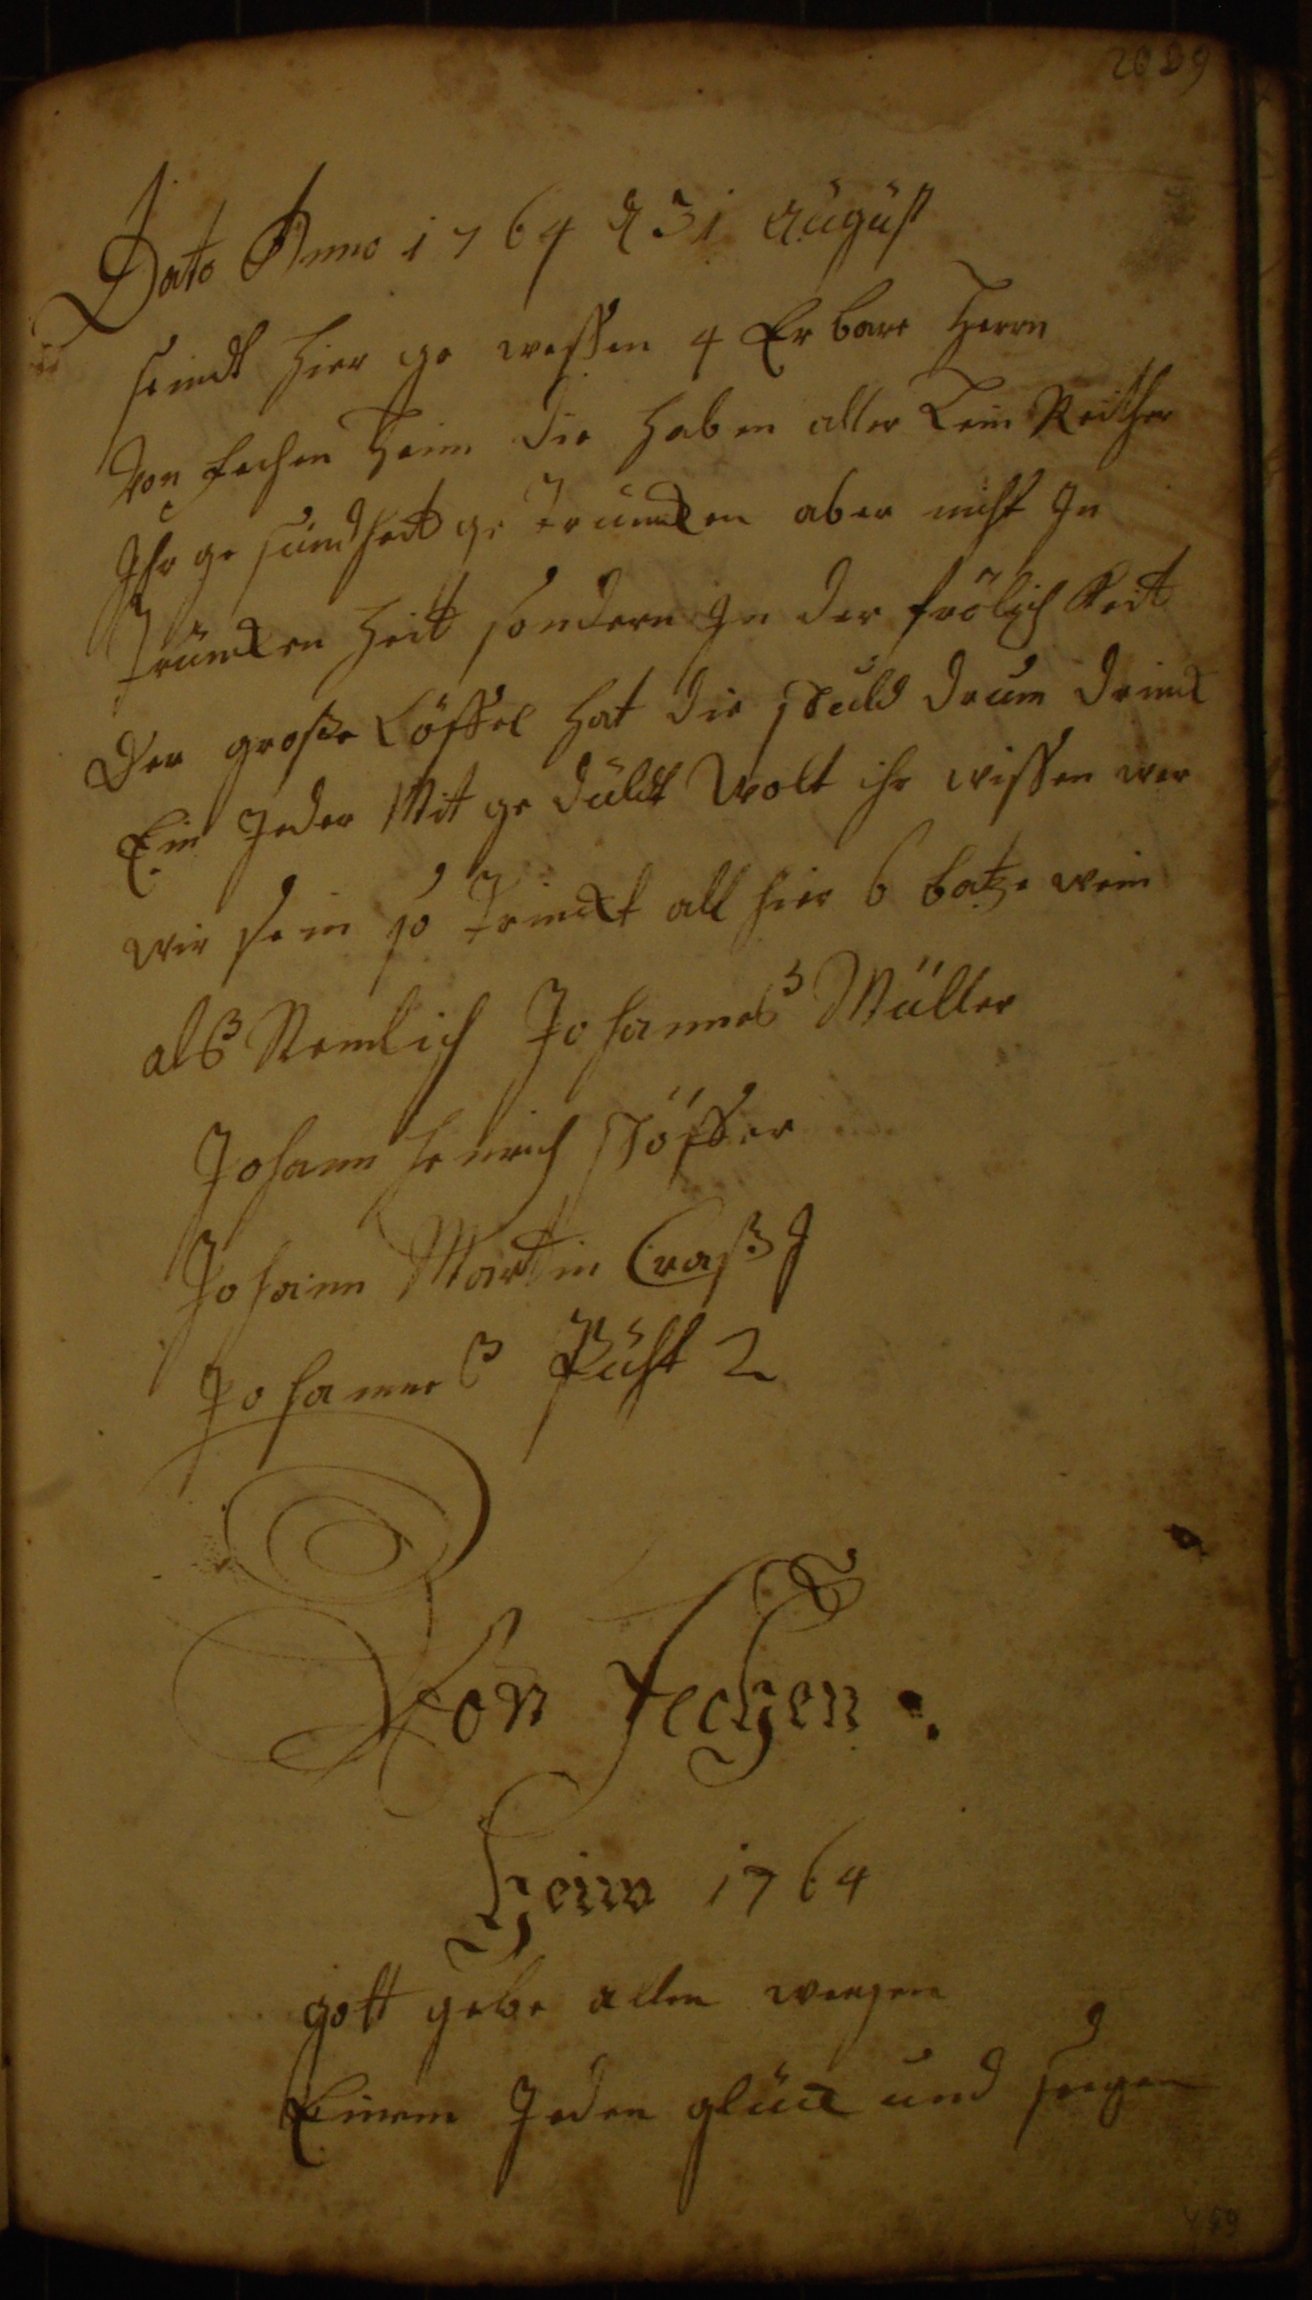 Dato Anno 1764 d 31 August
seindt hier ge wessen 4 Er bare Herrn
Von fechen Heim die haben aller Lein Reither
Ihr ge sundheit ge truncken aber nicht In
Trüncken heit sondern In der frölich Keit
Der große Löffel hat die schuld drum drinck
Ein Jeder Mit ge duldt Wolt ihr wissen wer
wir sein so Trinckt all hier 6 batze wein
alß Nemlich Johanneß Müller
Johann Henrich Stöffer
Johann Martin Craß
Johanneß
Von Fechen
Heim 1764
gott gebe allen weegen
Einem Jeden glück und seegen